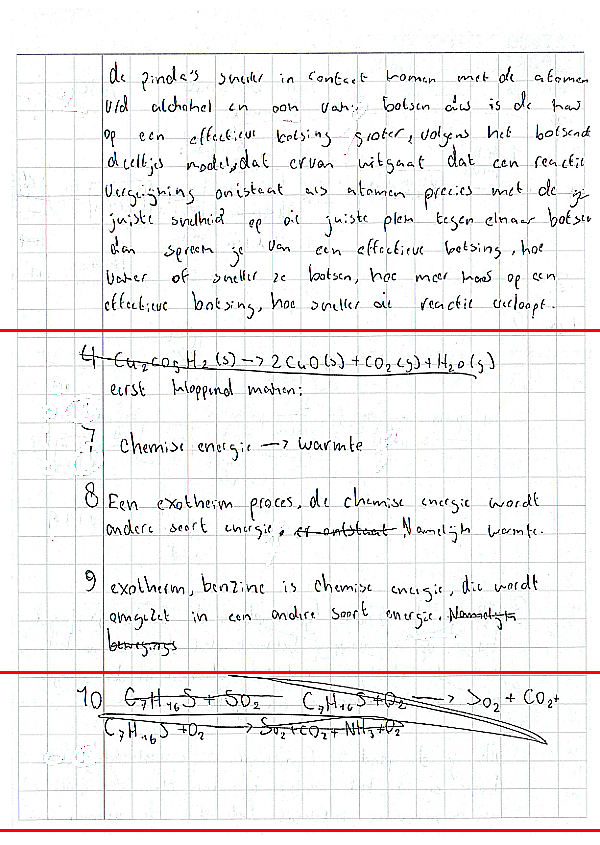 de pinda's sneller in contact komen met de atomen
v/d alchohol en dan vaker botsen dus is de kans
op een effectieve botsing groter, volgens het botsende
deeltjes model, dat ervan uitgaat dat een reactie
vergelijking onstaat als atomen precies met de
juiste snelheid op de juiste plek tegen elkaar botsen
dan spreek je van een effectieve botsing, hoe
vaker of sneller ze botsen, hoe meer kans op een
effectieve botsing, hoe sneller de reactie verloopt.
4 Cu2CO5H2(s) → 2CuO(s) + CO2(g) + H2O(g)
eerst kloppend maken:
7 Chemise energie → warmte
8 Een exotherm proces, de chemise energie wordt
andere soort energie, er ontstaat Namelijk warmte.
9 exotherm, benzine is chemise energie, die wordt
omgezet in een andere soort energie. Namelijk
bewegings
10 C7H16S + SO2 C7H16S + O2 → SO2 + CO2 +
C7H16S + O2 → SO2 + CO2 + NH3 + O2